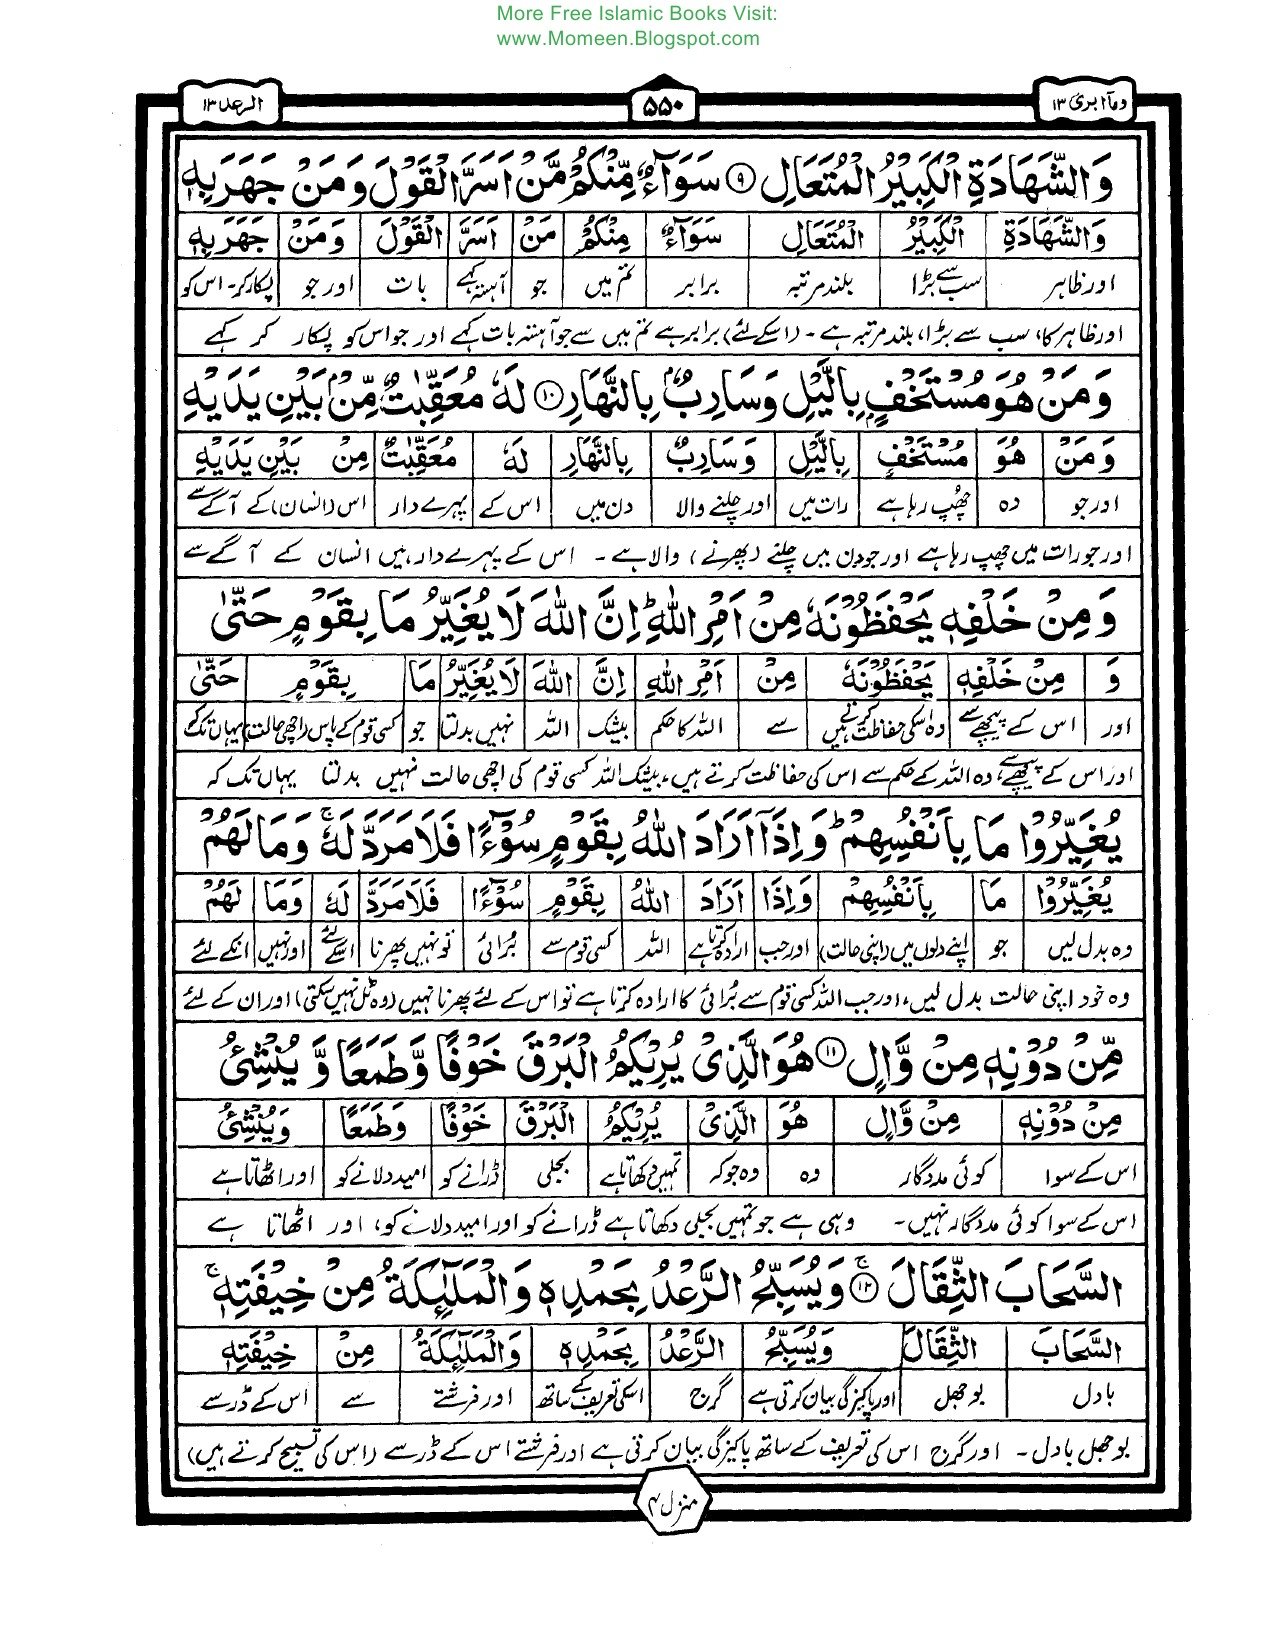 More Free Islamic Books Visit:
www.Momeen.Blogspot.com
وماۤ ابرئ ۱۳
۵۵۰
الرعد ۱۳
وَالشَّهَادَةِ الْكَبِيْرُ الْمُتَعَالِ ۹ سَوَآءٌ مِّنْكُمْ مَّنْ اَسَرَّ الْقَوْلَ وَمَنْ جَهَرَ بِهٖ
وَالشَّهَادَةِ الْكَبِيْرُ الْمُتَعَالِ سَوَآءٌ مِنْكُمْ مَنْ اَسَرَّ الْقَوْلَ وَمَنْ جَهَرَ بِهٖ
اور ظاہر سب سے بڑا بلند مرتبہ برابر تم میں جو آہستہ کہے بات اور جو پکار کر۔ اس کو
اور ظاہر کا، سب سے بڑا، بلند مرتبہ ہے۔ (اسکے لئے) برابر ہے تم میں سے جو آہستہ بات کہے اور جو اس کو پکار کر کہے
وَمَنْ هُوَ مُسْتَخْفٍۭ بِالَّيْلِ وَسَارِبٌۢ بِالنَّهَارِ ۱۰ لَهٗ مُعَقِّبٰتٌ مِّنْۢ بَيْنِ يَدَيْهِ
وَمَنْ هُوَ مُسْتَخْفٍ بِالَّيْلِ وَسَارِبٌ بِالنَّهَارِ لَهٗ مُعَقِّبٰتٌ مِنْ بَيْنِ يَدَيْهِ
اور جو وہ چھپ رہا ہے رات میں اور چلنے والا دن میں اس کے پہرے دار اس (انسان) کے آگے سے
اور جو رات میں چھپ رہا ہے اور جو دن میں چلنے (پھرنے) والا ہے۔ اس کے پہرے دار ہیں انسان کے آگے سے
وَمِنْ خَلْفِهٖ يَحْفَظُوْنَهٗ مِنْ اَمْرِ اللّٰهِ ؕ اِنَّ اللّٰهَ لَا يُغَيِّرُ مَا بِقَوْمٍ حَتّٰى
وَ مِنْ خَلْفِهٖ يَحْفَظُوْنَهٗ مِنْ اَمْرِ اللّٰهِ اِنَّ اللّٰهَ لَا يُغَيِّرُ مَا بِقَوْمٍ حَتّٰى
اور اس کے پیچھے سے وہ اسکی حفاظت کرتے ہیں سے اللہ کا حکم بیشک اللہ نہیں بدلتا جو کسی قوم کے پاس (اچھی حالت) یہاں تک کہ
اور اس کے پیچھے سے، وہ اللہ کے حکم سے اس کی حفاظت کرتے ہیں، بیشک اللہ کسی قوم کی اچھی حالت نہیں بدلتا یہاں تک کہ
يُغَيِّرُوْا مَا بِاَنْفُسِهِمْ ؕ وَاِذَاۤ اَرَادَ اللّٰهُ بِقَوْمٍ سُوْٓءًا فَلَا مَرَدَّ لَهٗ ۚ وَمَا لَهُمْ
يُغَيِّرُوْا مَا بِاَنْفُسِهِمْ وَاِذَا اَرَادَ اللّٰهُ بِقَوْمٍ سُوْٓءًا فَلَا مَرَدَّ لَهٗ وَمَا لَهُمْ
وہ بدل لیں جو اپنے دلوں میں (اپنی حالت) اور جب ارادہ کرتا ہے اللہ کسی قوم سے بُرائی تو نہیں پھرنا اسکے لئے اور نہیں انکے لئے
وہ خود اپنی حالت بدل لیں، اور جب اللہ کسی قوم سے بُرائی کا ارادہ کرتا ہے تو اس کے لئے پھرنا نہیں (وہ ٹل نہیں سکتی) اور ان کے لئے
مِّنْ دُوْنِهٖ مِنْ وَّالٍ ۱۱ هُوَ الَّذِىْ يُرِيْكُمُ الْبَرْقَ خَوْفًا وَّطَمَعًا وَّيُنْشِئُ
مِنْ دُوْنِهٖ مِنْ وَّالٍ هُوَ الَّذِىْ يُرِيْكُمُ الْبَرْقَ خَوْفًا وَطَمَعًا وَيُنْشِئُ
اس کے سوا کوئی مددگار وہ وہ جو کہ تمہیں دکھاتا ہے بجلی ڈرانے کو امید دلانے کو اور اٹھاتا ہے
اس کے سوا کوئی مددگار نہیں۔ وہی ہے جو تمہیں بجلی دکھاتا ہے ڈرانے کو اور امید دلانے کو، اور اٹھاتا ہے
السَّحَابَ الثِّقَالَ ۱۲ ۚ وَيُسَبِّحُ الرَّعْدُ بِحَمْدِهٖ وَالْمَلٰٓئِكَةُ مِنْ خِيْفَتِهٖ ۚ
السَّحَابَ الثِّقَالَ وَيُسَبِّحُ الرَّعْدُ بِحَمْدِهٖ وَالْمَلٰٓئِكَةُ مِنْ خِيْفَتِهٖ
بادل بوجھل اور پاکیزگی بیان کرتی ہے گرج اسکی تعریف کے ساتھ اور فرشتے سے اس کے ڈر سے
بوجھل بادل۔ اور گرج اس کی تعریف کے ساتھ پاکیزگی بیان کرتی ہے اور فرشتے اس کے ڈر سے (اس کی تسبیح کرتے ہیں)
منزل ۳